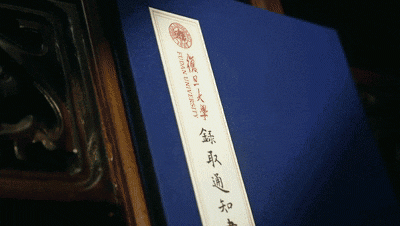 復旦大學
FUDAN UNIVERSITY
録取通知